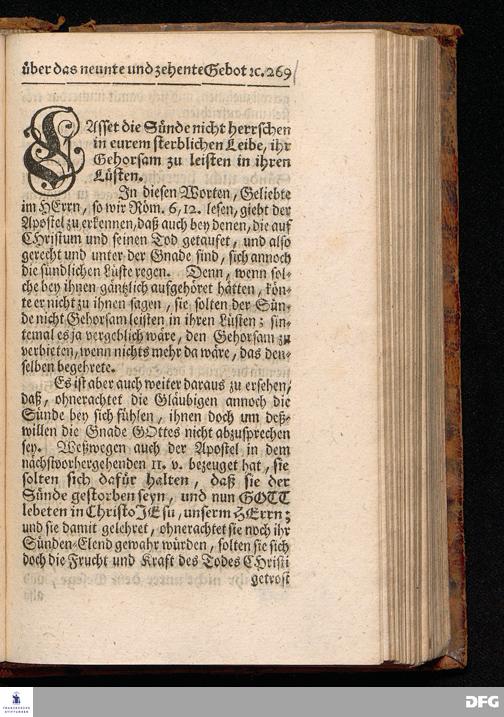 über das neunte und zehente Gebot ꝛc. 269
LAsset die Sünde nicht herrschen
in eurem sterblichen Leibe, ihr
Gehorsam zu leisten in ihren
Lüsten.
In diesen Worten, Geliebte
im HErrn, so wir Röm. 6, 12. lesen, giebt der
Apostel zu erkennen, daß auch bey denen, die auf
CHristum und seinen Tod getaufet, und also
gerecht und unter der Gnade sind, sich annoch
die sündlichen Lüste regen. Denn, wenn sol-
che bey ihnen gäntzlich aufgehöret hätten, kön-
te er nicht zu ihnen sagen, sie solten der Sün-
de nicht Gehorsam leisten in ihren Lüsten; sin-
temal es ja vergeblich wäre, den Gehorsam zu
verbieten, wenn nichts mehr da wäre, das den-
selben begehrete.
Es ist aber auch weiter daraus zu ersehen,
daß, ohnerachtet die Gläubigen annoch die
Sünde bey sich fühlen, ihnen doch um deß-
willen die Gnade GOttes nicht abzusprechen
sey. Weßwegen auch der Apostel in dem
nächstvorhergehenden 11. v. bezeuget hat, sie
solten sich dafür halten, daß sie der
Sünde gestorben seyn, und nun GOTT
lebeten in Christo JEsu, unserm HErrn;
und sie damit gelehret, ohnerachtet sie noch ihr
Sünden-Elend gewahr würden, solten sie sich
doch die Frucht und Kraft des Todes CHristi
getrost
FRANCKESCHE
STIFTUNGEN
DFG